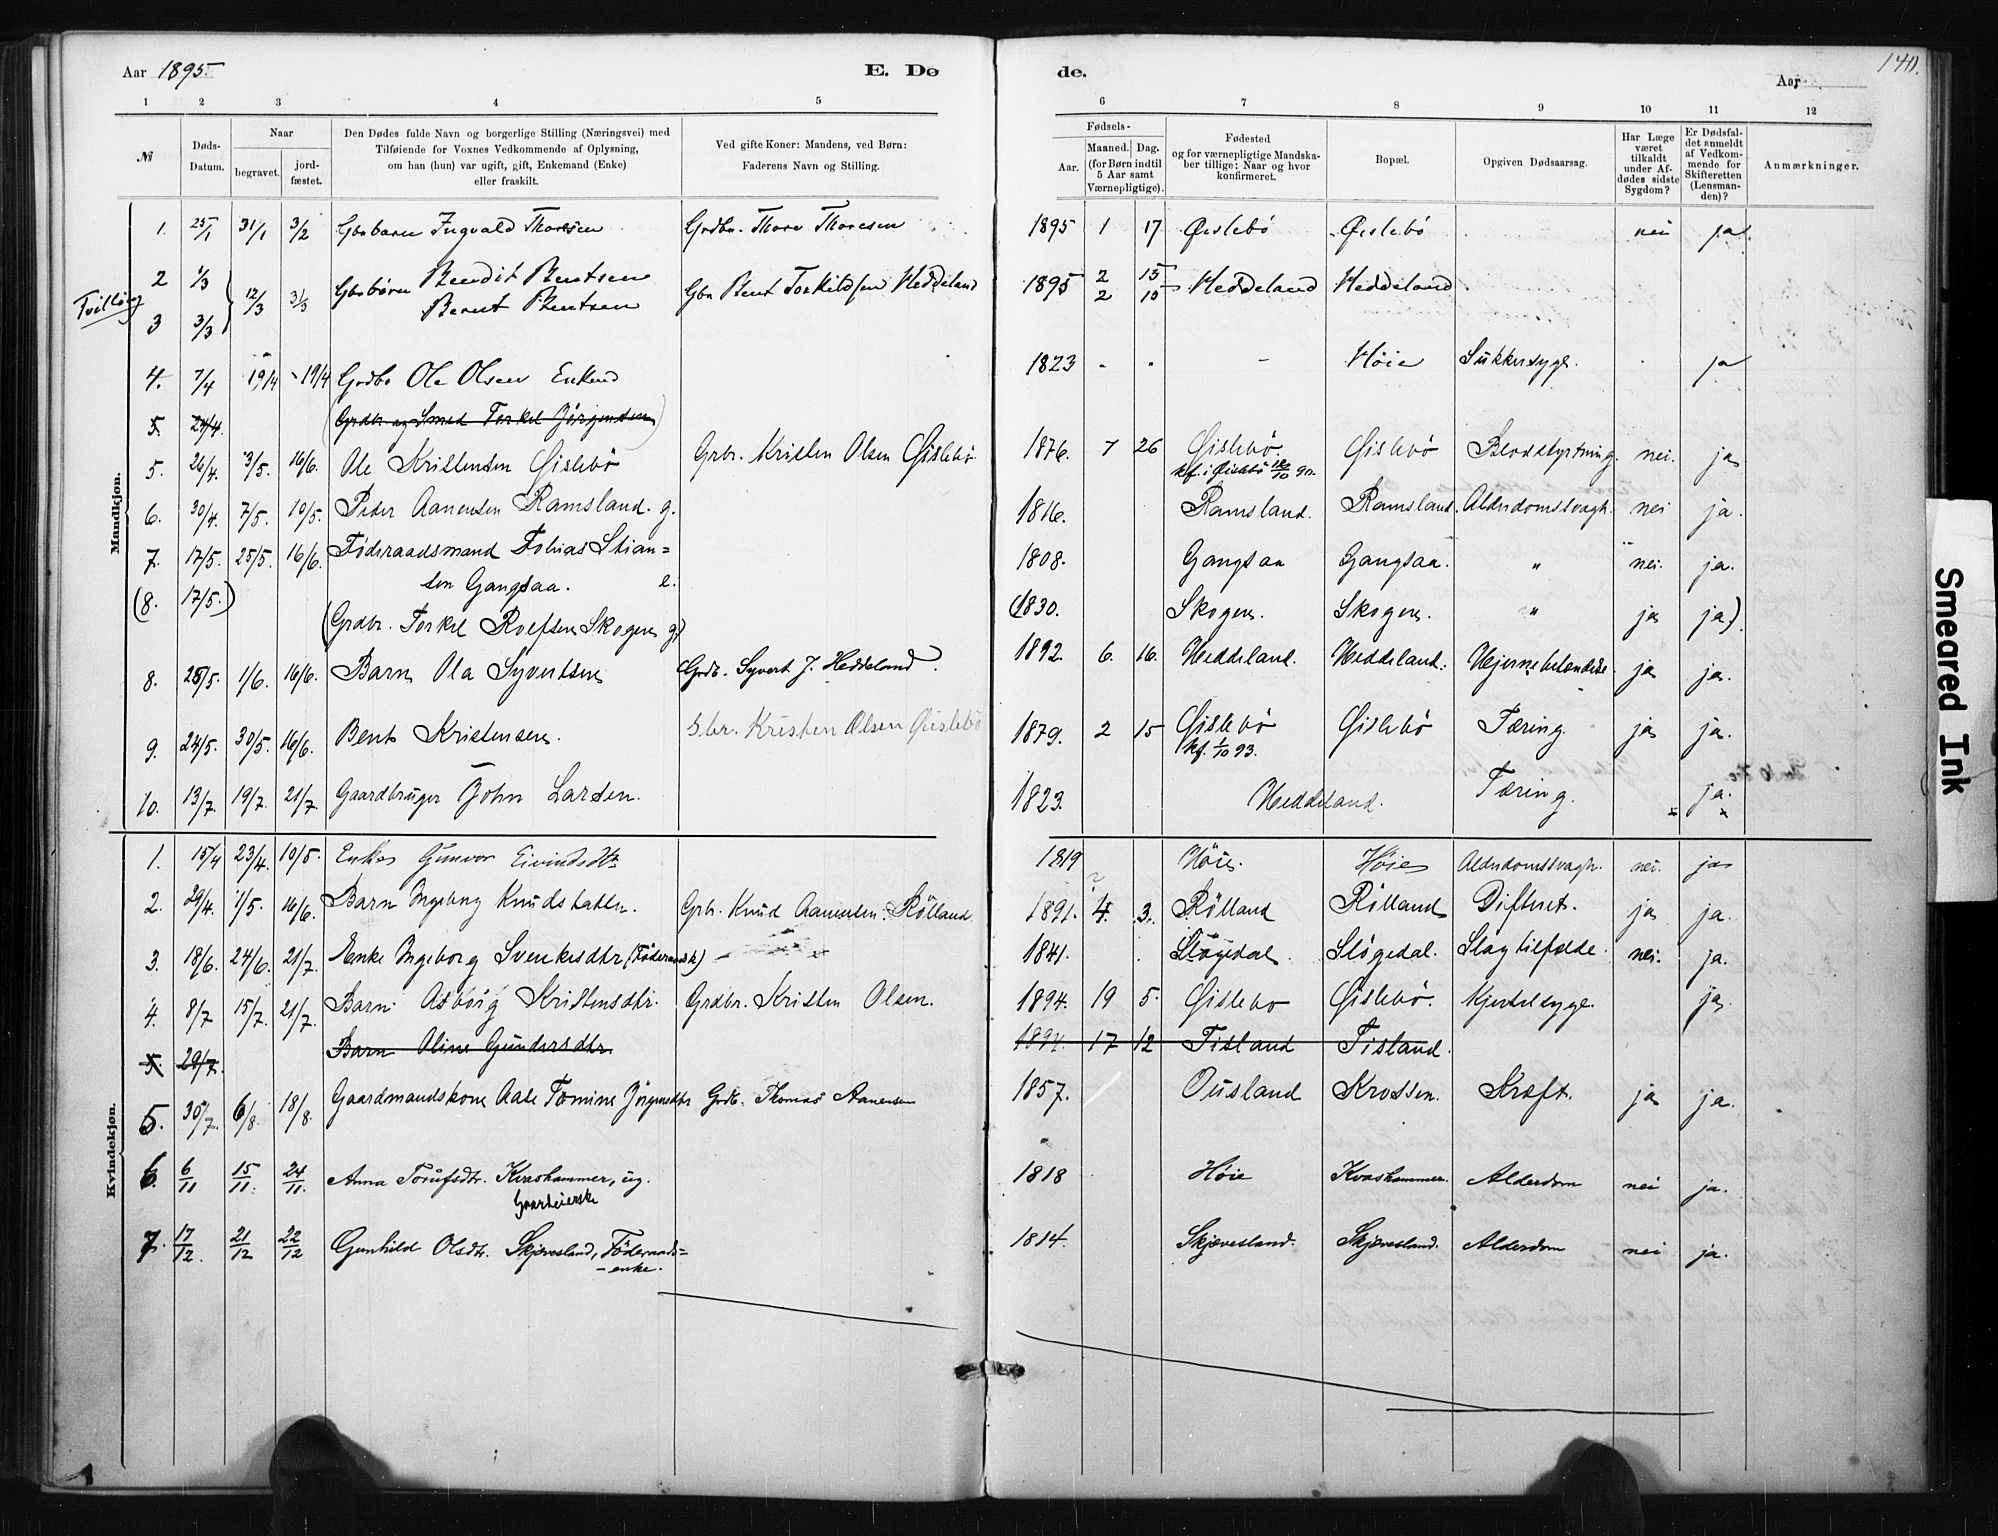 Aar 1895.
E. Dø
de.
Aar
140.
1 2 3 4 5 6 7 8 9 10 11 12
№
Døds-
Datum.
Naar
begravet.
jord-
fæstet.
Den Dødes fulde Navn og borgerlige Stilling (Næringsvei) med
Tilføiende for Voxnes Vedkommende af Oplysning,
om han (hun) var ugift, gift, Enkemand (Enke)
eller fraskilt.
Ved gifte Koner: Mandens, ved Børn:
Faderens Navn og Stilling.
Fødsels-
Aar.
Maaned. Dag.
(for Børn indtil
5 Aar samt
Værnepligtige).
Fødested
og for værnepligtige Mandska-
ber tillige: Naar og hvor
konfirmeret.
Bopæl.
Opgiven Dødsaarsag.
Har Læge
været
tilkaldt
under Af-
dødes sidste
Sygdom?
Er Dødsfal-
det anmeldt
af Vedkom-
mende for
Skifteretten
(Lensman-
den)?
Anmærkninger.
Mandkjøn.
1. 25/1 31/1 3/2 Gbrbarn Ingvald Thoresen Grdbr. Thore Thoresen 1895 1 17 Øislebö Øislebö nei ja.
Tvilling
2 1/3 12/3 3/3 Gbrbörn Bendit Bentsen Gbr Bent Torkildsen Heddeland 1895 2 15 Heddeland Heddeland
3 3/3 Berent Bentsen 2 10
4. 7/4 19/4 19/4 Grdbr Ole Olsen Enkemd 1823 Höie Sukkersyge. ja
5. 24/4. (Grdbr og Smed Torkel Jörgensen)
5. 26/4. 3/5. 16/6. Ole Kristensen Øislebö Grbr. Kristen Olsen Øislebö 1876. 7 26 Øislebö. Øislebö Blodstyrtning. nei. ja
kf. i Øislebö 12/10 90.
6. 30/4. 7/5. 10/5. Peder Aanensen Ramsland. g. 1816. Ramsland. Ramsland. Alderdomssvagh. nei ja.
7. 17/5. 25/5. 16/6. Föderaadsmand Tobias Stian= 1808. Gangsaa Gangsaa. " nei. ja.
sen Gangsaa. e.
(8. 17/5.) (Grdbr. Torkel Rolfsen Skogen g.) (1830. Skogen. Skogen. " ja ja.)
8. 28/5. 1/6. 16/6. Barn Ola Syvertsen Grdb. Syvert J. Heddeland. 1892. 6. 16. Heddeland. Heddeland. Hjernebetændelse. ja ja.
9. 24/5. 30/5. 16/6. Bent Kristensen. Gbr. Kristen Olsen Øislebö 1879. 2 15 Øislebö Øislebö Tæring. ja ja.
kf. 1/10 93.
10. 13/7. 19/7. 21/7. Gaardbruger John Larsen. 1823. Heddeland. Tæring. ja.
Kvindekjøn.
1. 15/4 23/4. 10/5. Enke Gunvor Eivindsdtr 1819 Höie. Höie Alderdomssvagh. nei. ja
2. 29/4. 1/5. 16/6. Barn Ingeborg Knudsdatter. Grbr. Knud Aanensen. Rölland 1891. 4. 3. Rölland Rölland Difterit. ja ja.
3. 18/6. 24/6. 21/7. Enke Ingeborg Svenkesdtr (Föderaadsk) 1841. Slögedal. Slögedal. Slagtilfælde. nei. ja.
4. 8/7 15/7. 21/7. Barn Asborg Kristensdtr. Grdbr. Kristen Olsen. 1894. 19 5. Øislebo Øislebö. Kjertelsyge. ja.
5. 29/7. Barn Oline Gundersdtr 1894. 17 12 Tisland Tisland.
5. 30/7. 6/8. 18/8. Gaardmandskone Aase Tomine Jörgensdtr Grdb. Thomas Aanensen 1857. Ousland Krossen. Kræft. ja ja.
6. 6/11 15/11. 24/11. Anna Torufsdtr. Kvashammer, ug. 1818 Höie Kvashammer. Alderdom nei ja.
Gaardeierske
7. 17/12. 21/12 22/12 Gunhild Olsdtr. Skjævesland, Föderaads= 1814. Skjævesland. Skjævesland. Alderdom nei ja.
-enke.
Smeared Ink